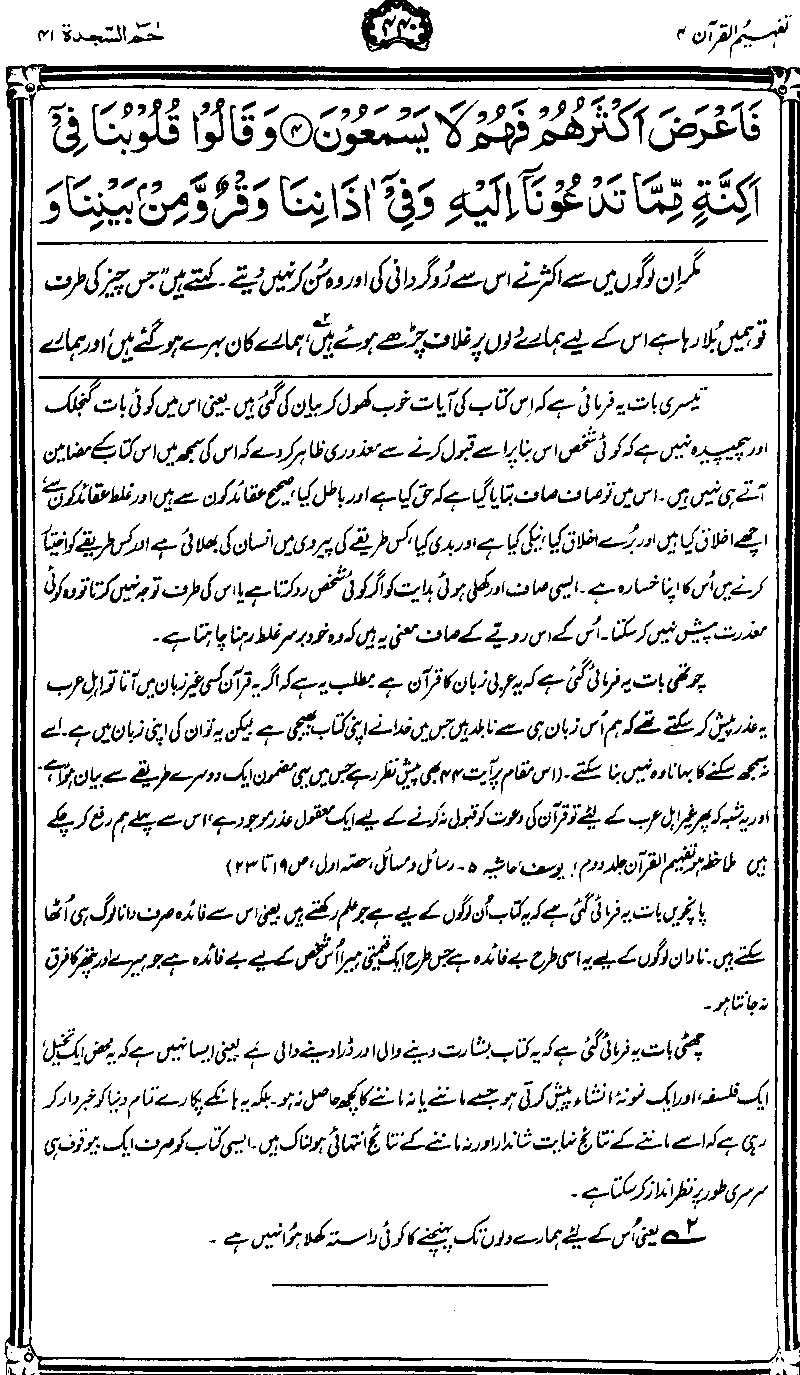 تفہیم القرآن ۴
۴۴۰
حٰمٓ السّجدة ۴۱
فَاَعْرَضَ اَكْثَرُهُمْ فَهُمْ لَا يَسْمَعُوْنَ ﴿۴﴾ وَقَالُوْا قُلُوْبُنَا فِيْٓ
اَكِنَّةٍ مِّمَّا تَدْعُوْنَآ اِلَيْهِ وَفِيْٓ اٰذَانِنَا وَقْرٌ وَّمِنْۢ بَيْنِنَا وَ
مگر ان لوگوں میں سے اکثر نے اس سے رُوگردانی کی اور وہ سُن کر نہیں دیتے۔ کہتے ہیں "جس چیز کی طرف
تو ہمیں بُلا رہا ہے اس کے لیے ہمارے دلوں پر غلاف چڑھے ہوئے ہیں۲، ہمارے کان بہرے ہو گئے ہیں، اور ہمارے
تیسری بات یہ فرمائی ہے کہ اِس کتاب کی آیات خوب کھول کر بیان کی گئی ہیں۔ یعنی اس میں کوئی بات گنجلک
اور پیچیدہ نہیں ہے کہ کوئی شخص اس بنا پر اسے قبول کرنے سے معذوری ظاہر کر دے کہ اس کی سمجھ میں اس کتاب کے مضامین
آتے ہی نہیں ہیں۔ اس میں تو صاف صاف بتایا گیا ہے کہ حق کیا ہے اور باطل کیا، صحیح عقائد کون سے ہیں اور غلط عقائد کون سے،
اچھے اخلاق کیا ہیں اور بُرے اخلاق کیا، نیکی کیا ہے اور بدی کیا، کس طریقے کی پیروی میں انسان کی بھلائی ہے اور کس طریقے کو اختیار
کرنے میں اُس کا اپنا خسارہ ہے۔ ایسی صاف اور کھلی ہوئی ہدایت کو اگر کوئی شخص رد کرتا ہے یا اس کی طرف توجہ نہیں کرتا تو وہ کوئی
معذرت پیش نہیں کر سکتا۔ اُس کے اس رویّے کے صاف معنی یہ ہیں کہ وہ خود برسرِ غلط رہنا چاہتا ہے۔
چوتھی بات یہ فرمائی گئی ہے کہ یہ عربی زبان کا قرآن ہے۔ مطلب یہ ہے کہ اگر یہ قرآن کسی غیر زبان میں آتا تو اہلِ عرب
یہ عذر پیش کر سکتے تھے کہ ہم اُس زبان ہی سے نابلد ہیں جس میں خدا نے اپنی کتاب بھیجی ہے لیکن یہ تو ان کی اپنی زبان میں ہے۔ اسے
نہ سمجھ سکنے کا بہانا وہ نہیں بنا سکتے۔ (اس مقام پر آیت ۴۴ بھی پیشِ نظر رہے جس میں یہی مضمون ایک دوسرے طریقے سے بیان ہوا ہے۔
اور یہ شبہ کہ پھر غیر اہلِ عرب کے لیئے تو قرآن کی دعوت کو قبول نہ کرنے کے لیے ایک معقول عذر موجود ہے، اس سے پہلے ہم رفع کر چکے
ہیں ملاحظہ ہو تفہیم القرآن جلد دوم، یوسف، حاشیہ ۵۔ رسائل و مسائل، حصّہ اول، ص ۱۹ تا ۲۳)
پانچویں بات یہ فرمائی گئی ہے کہ یہ کتاب اُن لوگوں کے لیے ہے جو علم رکھتے ہیں یعنی اس سے فائدہ صرف دانا لوگ ہی اُٹھا
سکتے ہیں۔ نادان لوگوں کے لیے یہ اسی طرح بے فائدہ ہے جس طرح ایک قیمتی ہیرا اُس شخص کے لیے بے فائدہ ہے جو ہیرے اور پتھر کا فرق
نہ جانتا ہو۔
چھٹی بات یہ فرمائی گئی ہے کہ یہ کتاب بشارت دینے والی اور ڈرا دینے والی ہے، یعنی ایسا نہیں ہے کہ یہ محض ایک تخیل،
ایک فلسفہ، اور ایک نمونۂ انشاء پیش کرتی ہو جسے ماننے یا نہ ماننے کا کچھ حاصل نہ ہو۔ بلکہ یہ ہانکے پکارے تمام دنیا کو خبردار کر
رہی ہے کہ اسے ماننے کے نتائج نہایت شاندار اور نہ ماننے کے نتائج انتہائی ہولناک ہیں۔ ایسی کتاب کو صرف ایک بیوقوف ہی
سرسری طور پر نظر انداز کر سکتا ہے۔
۲ یعنی اُس کے لیئے ہمارے دلوں تک پہنچنے کا کوئی راستہ کھلا ہُوا نہیں ہے۔